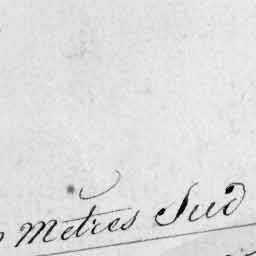 Metres Sud